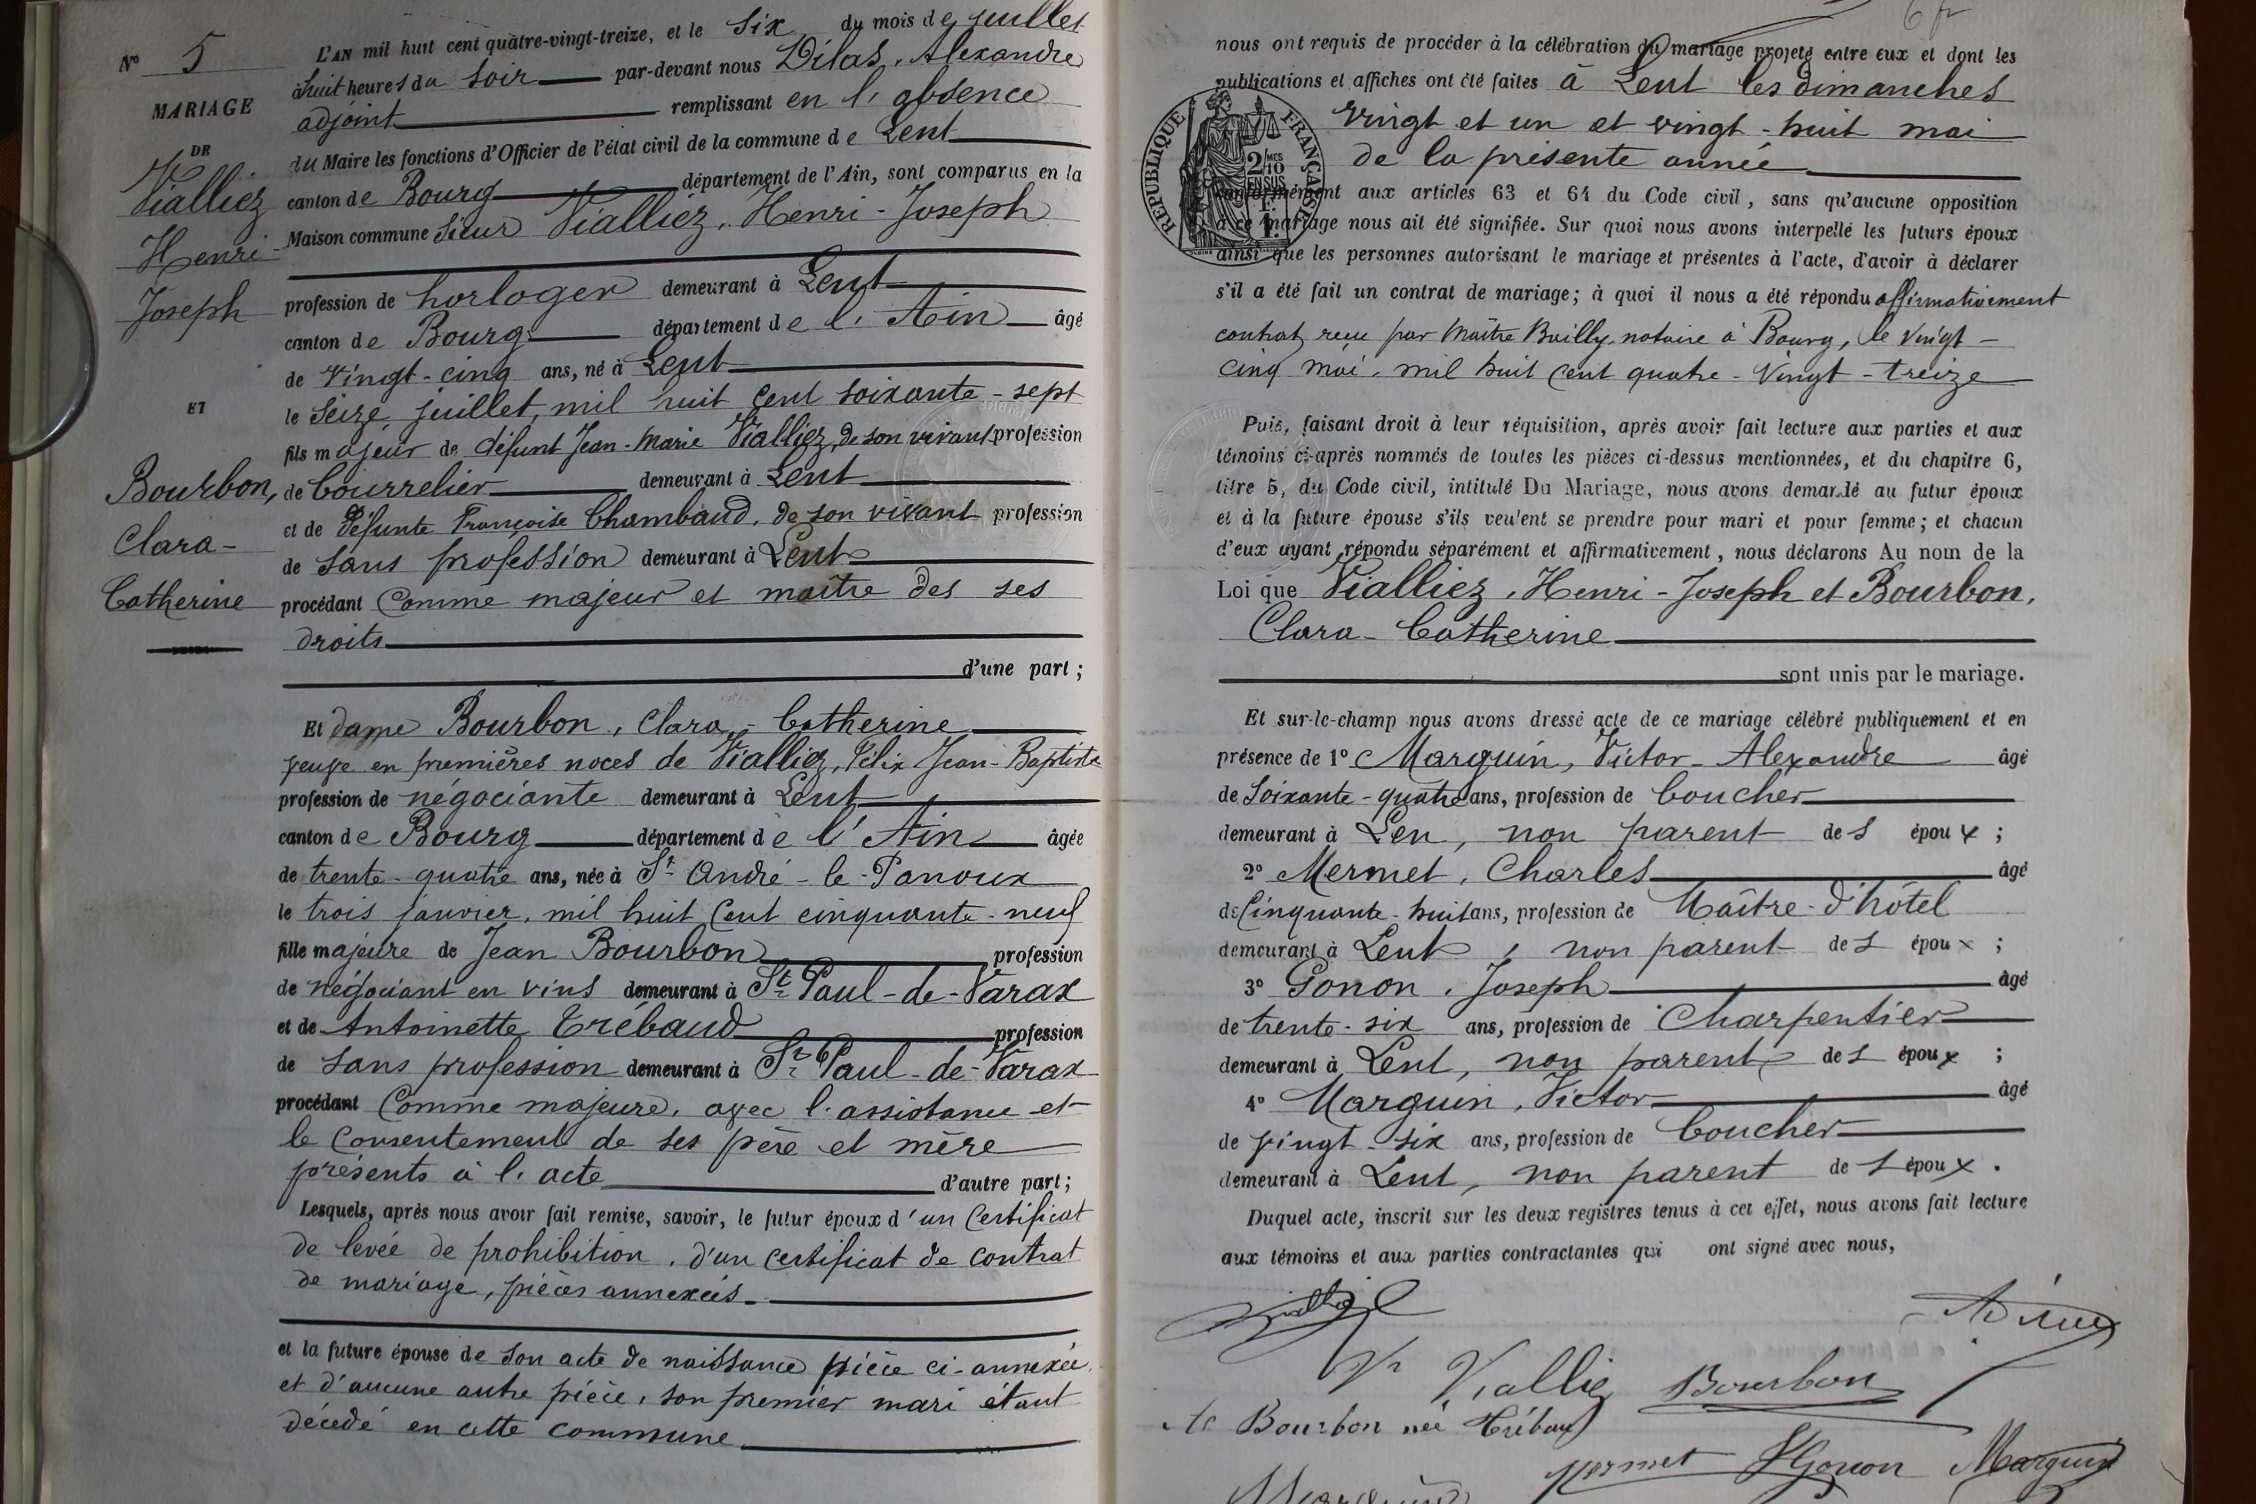 N° 5
MARIAGE
DE
Vialliez
Henri-
Joseph
ET
Bourbon,
Clara-
Catherine
L'AN mil huit cent quatre-vingt-treize, et le six du mois de juillet
à huit heures du soir par-devant nous Dilas, Alexandre
adjoint remplissant en l'absence
du Maire les fonctions d'Officier de l'état civil de la commune de Lent
canton de Bourg département de l'Ain, sont comparus en la
Maison commune Sieur Vialliez, Henri-Joseph
profession de horloger demeurant à Lent
canton de Bourg département de l'Ain âgé
de vingt-cinq ans, né à Lent
le seize juillet, mil huit cent soixante-sept
fils majeur de défunt Jean-Marie Vialliez, de son vivant profession
de bourrelier demeurant à Lent
et de défunte Françoise Chambaud, de son vivant profession
de sans profession demeurant à Lent
procédant comme majeur et maître des ses
droits
d'une part ;
Et dame Bourbon, Clara-Catherine
veuve en premières noces de Vialliez, Félix Jean-Baptiste
profession de négociante demeurant à Lent
canton de Bourg département de l'Ain âgée
de trente-quatre ans, née à St André-le-Panoux
le trois janvier, mil huit cent cinquante-neuf
fille majeure de Jean Bourbon profession
de négociant en vins demeurant à St Paul-de-Varax
et de Antoinette Trébaud profession
de sans profession demeurant à St Paul-de-Varax
procédant comme majeure, avec l'assistance et
le consentement de ses père et mère
présents à l'acte d'autre part ;
Lesquels, après nous avoir fait remise, savoir, le futur époux d'un certificat
de levée de prohibition, d'un certificat de contrat
de mariage, pièces annexées.
et la future épouse de son acte de naissance pièce ci-annexée
et d'aucune autre pièce, son premier mari étant
décédé en cette commune
6 fr
nous ont requis de procéder à la célébration du mariage projeté entre eux et dont les
publications et affiches ont été faites à Lent les dimanches
vingt et un et vingt-huit mai
de la présente année
RÉPUBLIQUE FRANÇAISE
2/10 MES
EN SUS
1 F.
conformément aux articles 63 et 64 du Code civil, sans qu'aucune opposition
à ce mariage nous ait été signifiée. Sur quoi nous avons interpellé les futurs époux
ainsi que les personnes autorisant le mariage et présentes à l'acte, d'avoir à déclarer
s'il a été fait un contrat de mariage ; à quoi il nous a été répondu affirmativement
contrat reçu par Maître Bailly, notaire à Bourg, le vingt-
cinq mai, mil huit cent quatre-vingt-treize
Puis, faisant droit à leur réquisition, après avoir fait lecture aux parties et aux
témoins ci-après nommés de toutes les pièces ci-dessus mentionnées, et du chapitre 6,
titre 5, du Code civil, intitulé Du Mariage, nous avons demandé au futur époux
et à la future épouse s'ils veulent se prendre pour mari et pour femme ; et chacun
d'eux ayant répondu séparément et affirmativement, nous déclarons Au nom de la
Loi que Vialliez, Henri-Joseph et Bourbon,
Clara-Catherine
sont unis par le mariage.
Et sur-le-champ nous avons dressé acte de ce mariage célébré publiquement et en
présence de 1° Marguin, Victor-Alexandre âgé
de soixante-quatre ans, profession de boucher
demeurant à Len, non parent des époux ;
2° Mermet, Charles âgé
de cinquante-huit ans, profession de Maître-d'hôtel
demeurant à Lent, non parent des époux ;
3° Gonon, Joseph âgé
de trente-six ans, profession de charpentier
demeurant à Lent, non parent des époux ;
4° Marguin, Victor âgé
de vingt-six ans, profession de boucher
demeurant à Lent, non parent des époux.
Duquel acte, inscrit sur les deux registres tenus à cet effet, nous avons fait lecture
aux témoins et aux parties contractantes qui ont signé avec nous,
Vialliez
Vve Viallies Bourbon
Bourbon née Trébaud
Mermet JGonon Marguin
Marguin